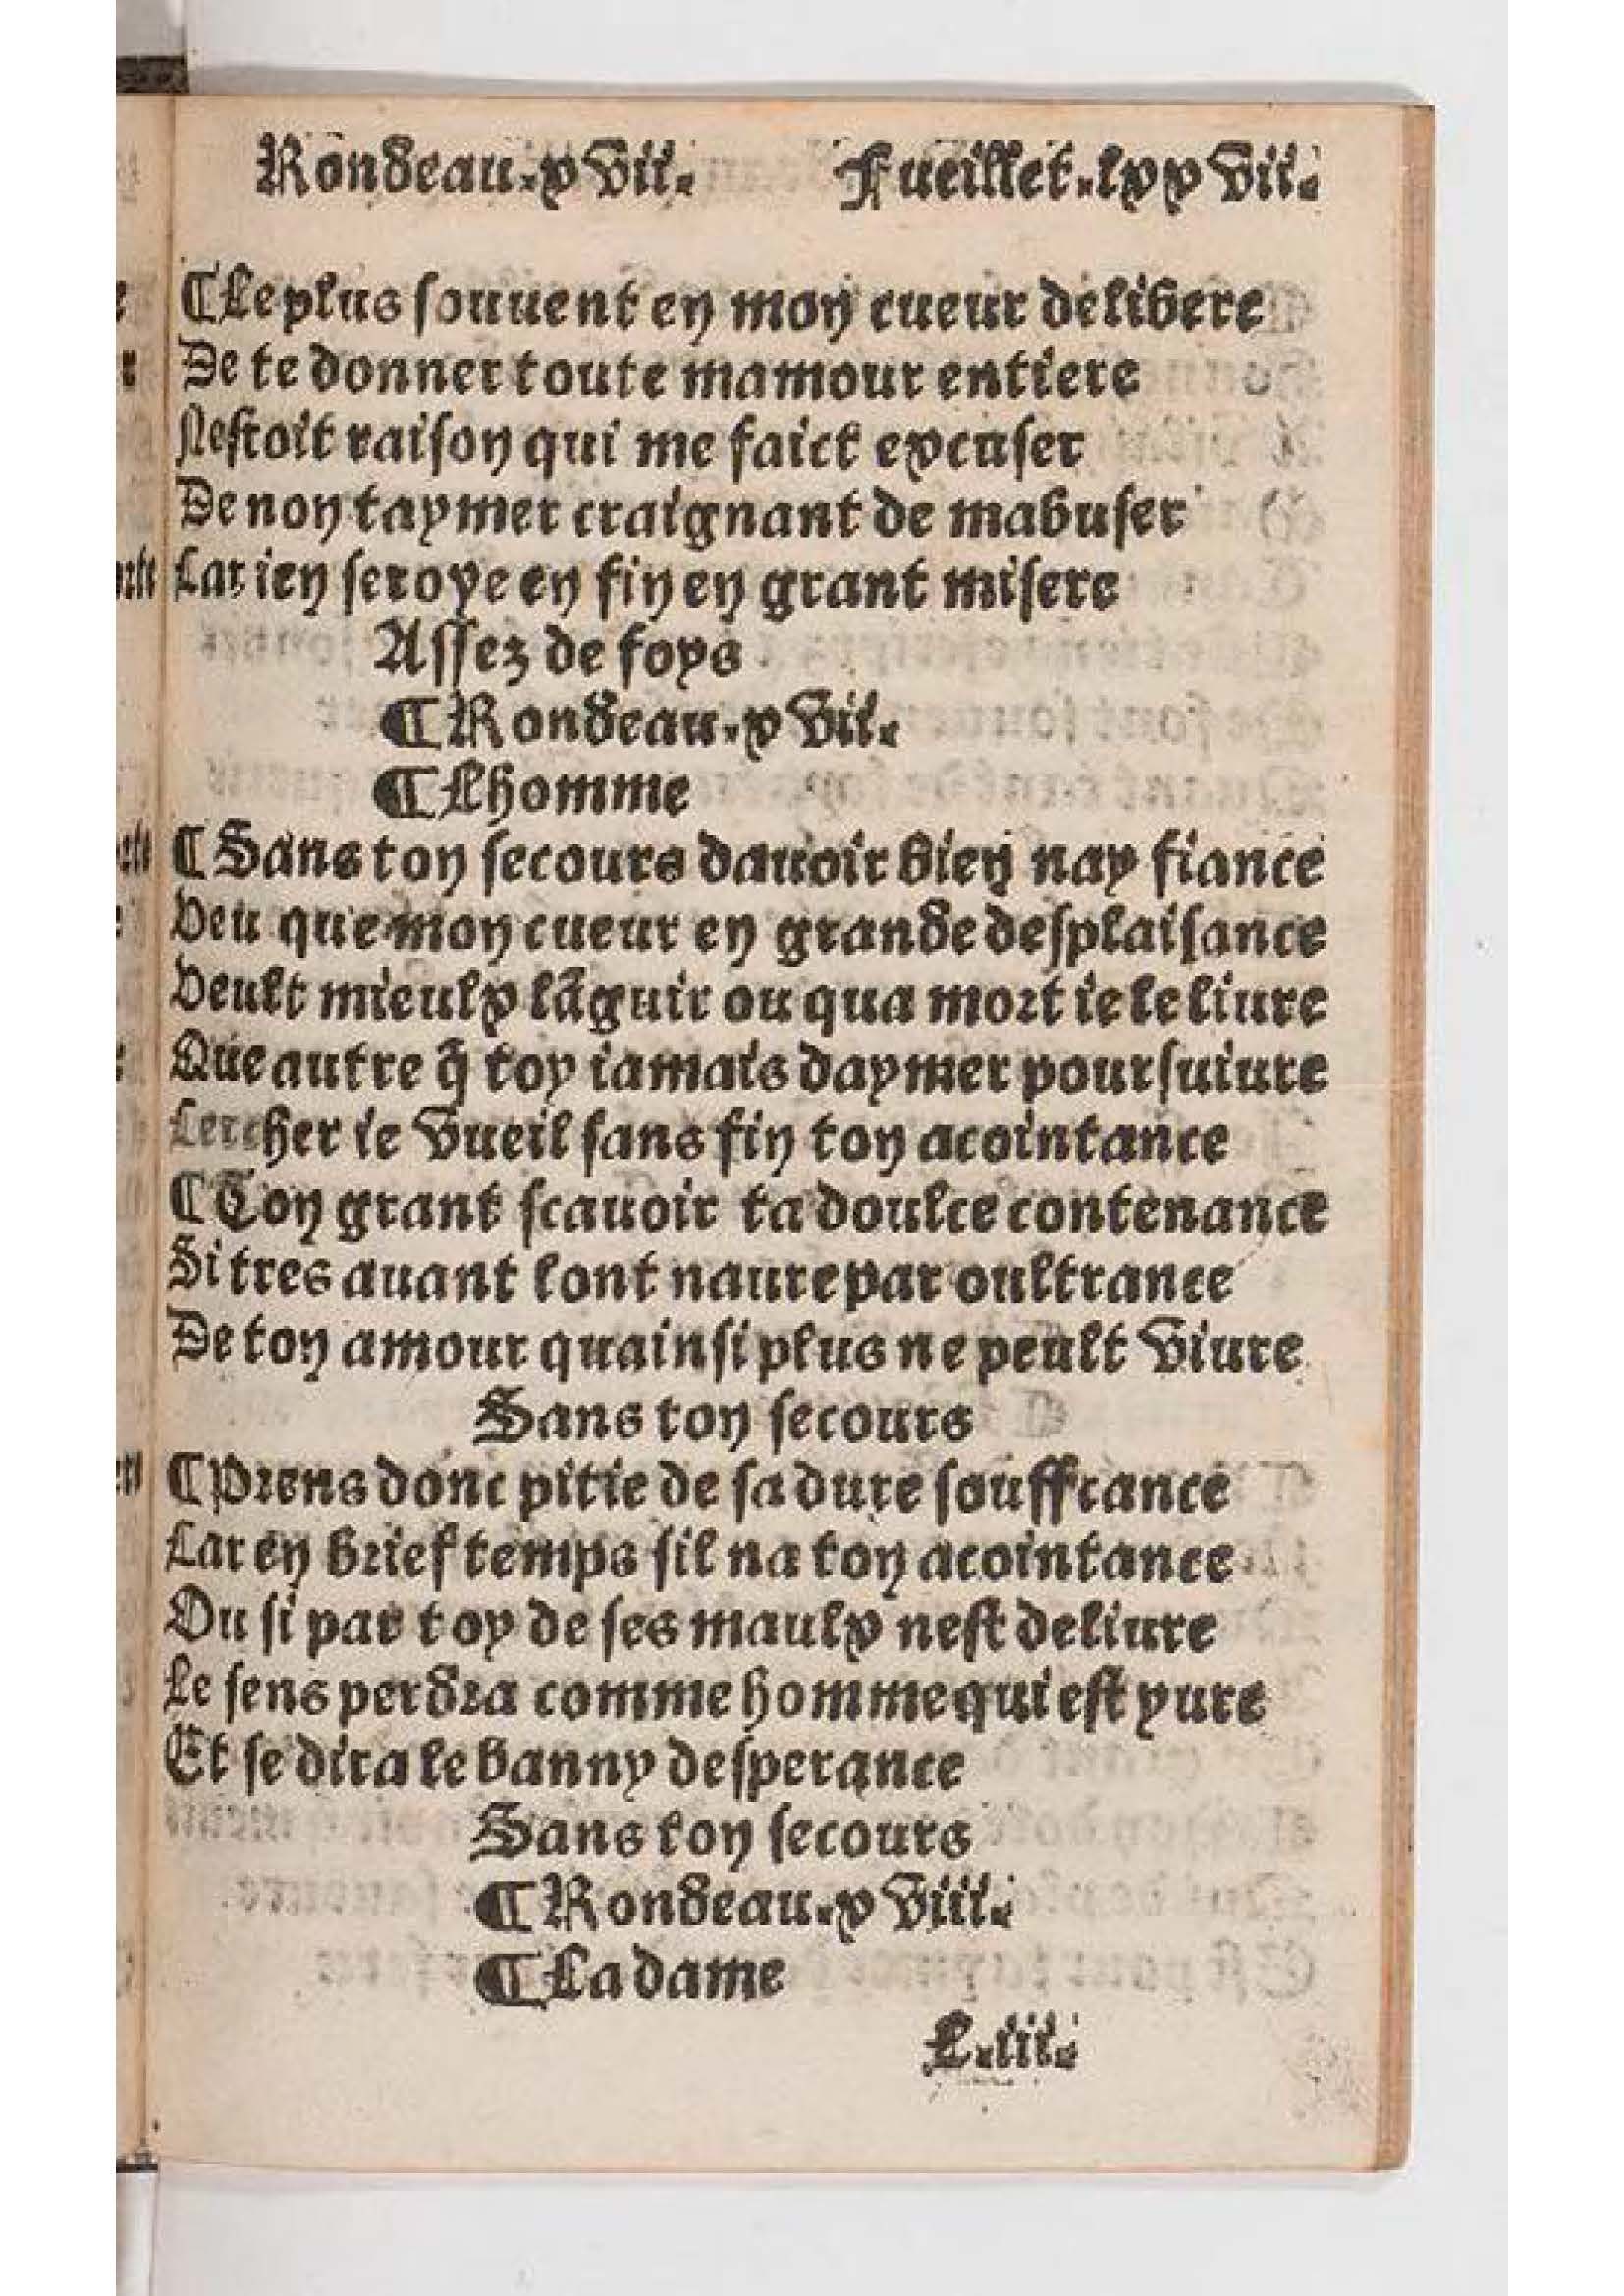 Rondeau.xvii. Fueillet.lxxvii.
¶Le plus souuent en mon cueur delibere
De te donner toute mamour entiere
Nestoit raison qui me faict excuser
De non taymer craignant de mabuser
Car ien seroye en fin en grant misere
Assez de foys
¶Rondeau.xvii.
¶Lhomme
¶Sans ton secours dauoir bien nay fiance
Veu que mon cueur en grande desplaisance
Veult mieulx lãguir ou qua mort ie le liure
Que autre q̃ toy iamais daymer poursuiure
Cercher ie vueil sans fin ton acointance
¶Ton grant scauoir ta doulce contenance
Si tres auant lont naure par oultrance
De ton amour quainsi plus ne peult viure
Sans ton secours
¶Prens donc pitie de sa dure souffrance
Car en brief temps sil na ton acointance
Ou si par toy de ses maulx nest deliure
Le sens perdra comme homme qui est yure
Et se dira le banny desperance
Sans ton secours
¶Rondeau.xviii.
¶La dame
L.iii.